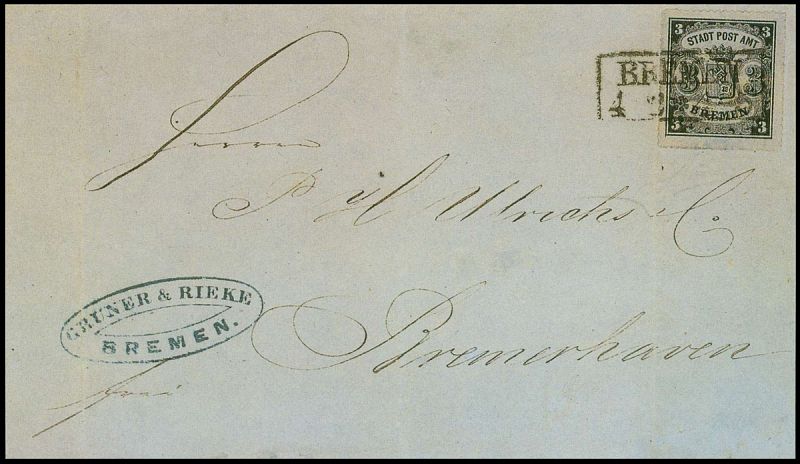 3 3
STADT POST AMT
3 3
BREMEN
3 3
BREMEN
4 2
Herrn
P. H. Ulrichs & C.
GRUNER & RIEKE
BREMEN.
Bremerhaven
frei